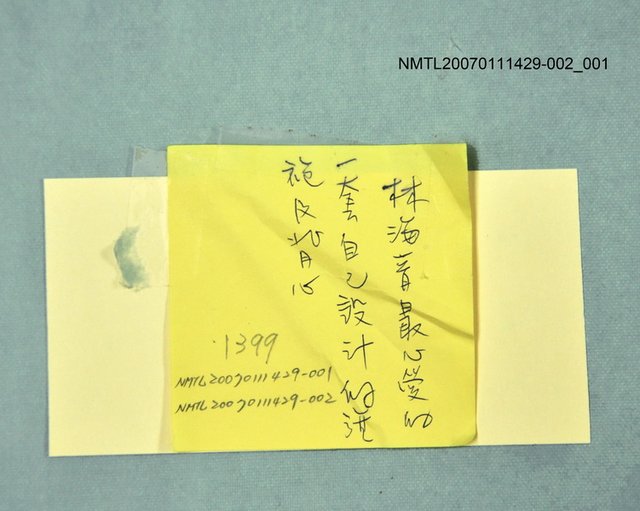 NMTL20070111429-002_001
林海音最心愛的
一套自己設計的洋
袍及背心
1399
NMTL20070111429-001
NMTL20070111429-002